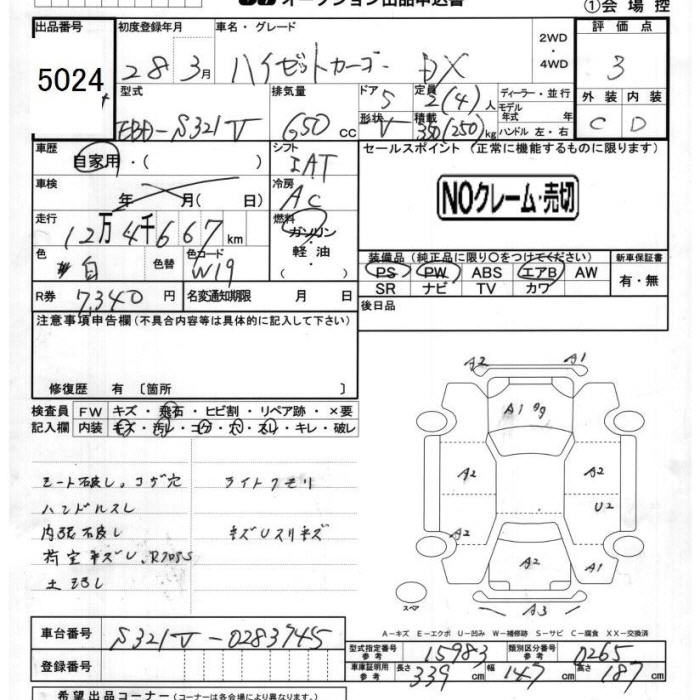 オークション出品申込書
①会場控
出品番号 初度登録年月 車名・グレード 2WD ・ 4WD 評価点
5024 28年 3月 ハイゼットカーゴ DX 3
型式 排気量 ドア 定員 ディーラー・並行 外装 内装
EBD-S321V 650 cc 5 2(4)人 モデル年式 年 C D
形状 V 積載 350(250)kg ハンドル 左・右
車歴 自家用・( ) シフト IAT セールスポイント (正常に機能するものに限ります)
車検 年 月( 日) 冷房 AC NOクレーム・売切
走行 12万4千667km 燃料 ガソリン・軽油・( )
色 白 色替 色コード W19 装備品 (純正品に限り○をつけてください) 新車保証書
PS PW ABS エアB AW 有・無
R券 7,340円 名変通知期限 月 日 SR ナビ TV カワ
注意事項申告欄 (不具合内容等は具体的に記入して下さい) 後日品
修復歴 有 [箇所 ]
検査員 FW キズ・飛石・ヒビ割・リペア跡・×要
記入欄 内装 キズ・汚れ・コゲ・穴・スレ・キレ・破レ
A2 A1
A1
シート破レ。コゲ穴 ライトクモリ
A2 A2
ハンドルスレ U2
内張破レ キズUスリキズ
A2
荷室キズU.
A2 A1
A3
スペア
A-キズ E-エクボ U-凹み W-補修跡 S-サビ C-腐食 XX-交換済
車台番号 S321V-0283745
型式指定番号 参考 15983 類別区分番号 参考 0265
登録番号 車庫証明用 参考 長さ 339cm 幅 147cm 高さ 187cm
希望出品コーナー (コーナーは各会場により異なります。)